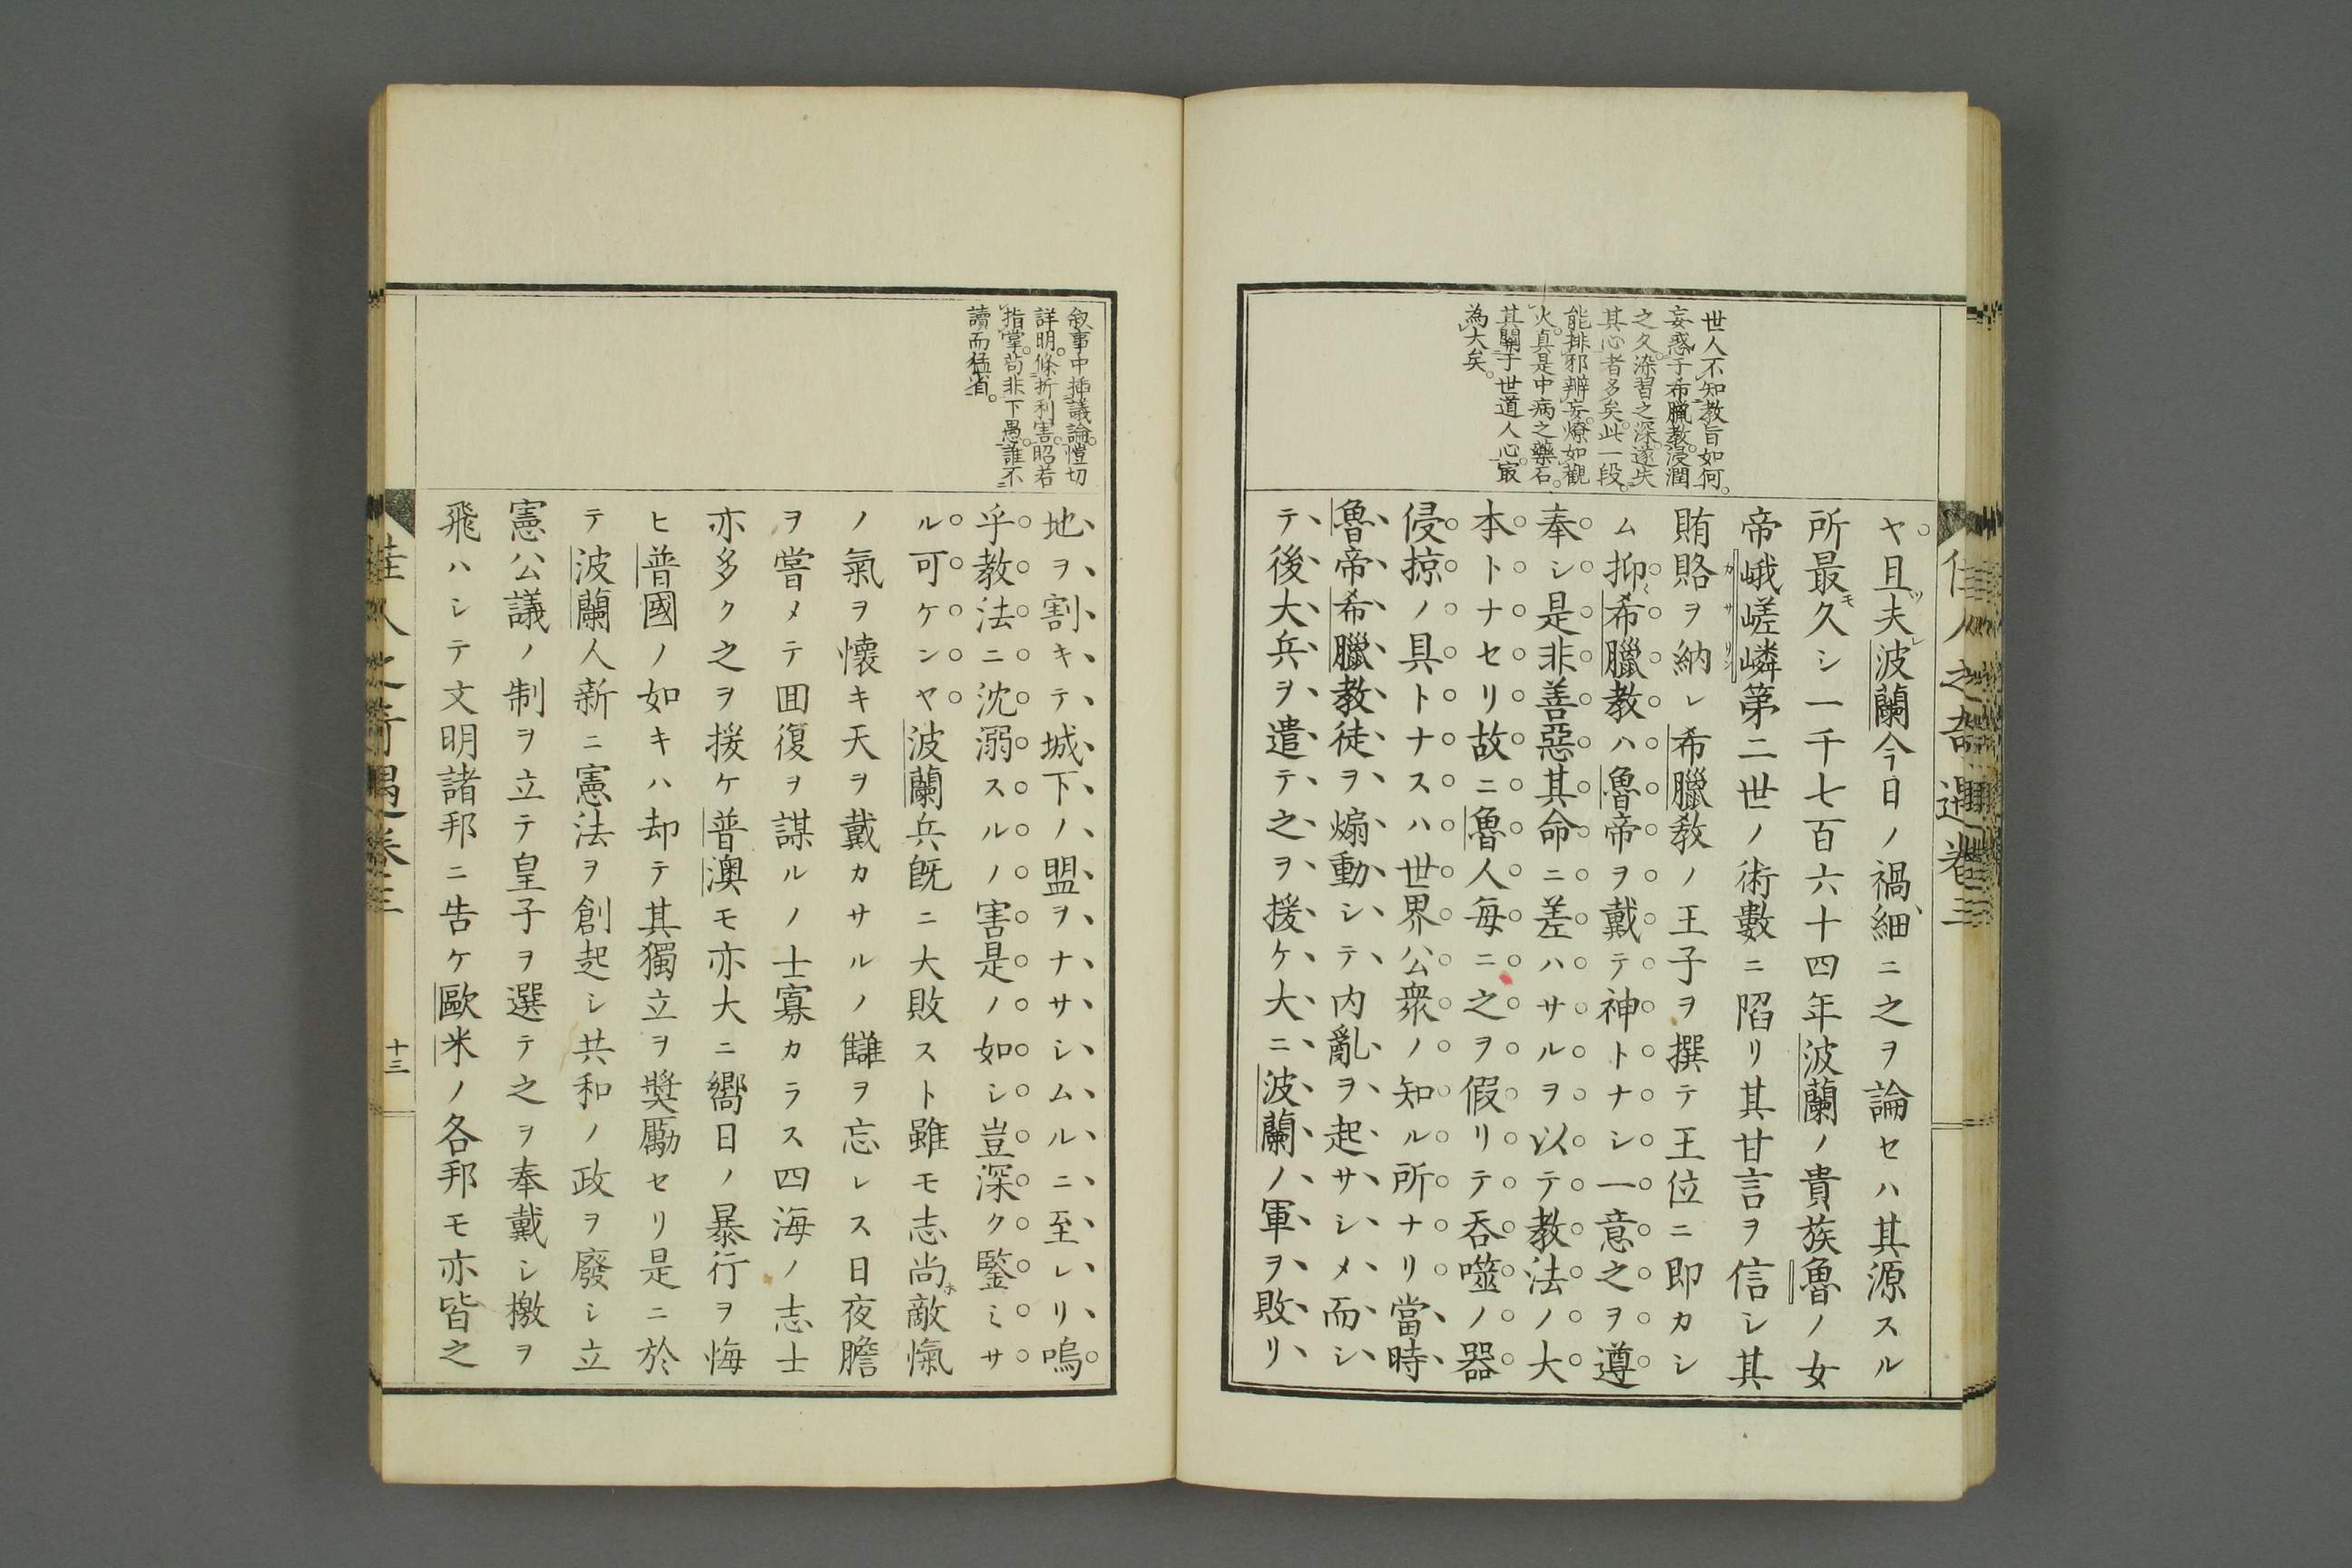 佳人之奇遇卷三
世人不知教旨如何
妄惑于希臘教浸潤
之久染習之深遂失
其心者多矣此一段
能排邪辨妄燎如觀
火真是中病之藥石
其關于世道人心㝡
為大矣
ヤ且夫波蘭今日ノ禍細ニ之ヲ論セハ其源スル
所最久シ一千七百六十四年波蘭ノ貴族魯ノ女
帝峨嵯嶙第二世ノ術數ニ陷リ其甘言ヲ信シ其
賄賂ヲ納レ希臘教ノ王子ヲ撰テ王位ニ即カシ
ム抑希臘教ハ魯帝ヲ戴テ神トナシ一意之ヲ遵
奉シ是非善惡其命ニ差ハサルヲ以テ教法ノ大
本トナセリ故ニ魯人毎ニ之ヲ假リテ吞噬ノ器
侵掠ノ具トナスハ世界公衆ノ知ル所ナリ當時
魯帝希臘教徒ヲ煽動シテ内亂ヲ起サシメ而シ
テ後大兵ヲ遣テ之ヲ援ケ大ニ波蘭ノ軍ヲ敗リ
叙事中插議論愷切
詳明條折利害昭若
指掌苟非下愚誰不
讀而猛省
地ヲ割キテ城下ノ盟ヲナサシムルニ至レリ嗚
乎教法ニ沈溺スルノ害是ノ如シ豈深ク鑒ミサ
ル可ケンヤ波蘭兵既ニ大敗スト雖モ志尚敵愾
ノ氣ヲ懷キ天ヲ戴カサルノ讎ヲ忘レス日夜膽
ヲ嘗メテ囬復ヲ謀ルノ士寡カラス四海ノ志士
亦多ク之ヲ援ケ普澳モ亦大ニ嚮日ノ暴行ヲ悔
ヒ普國ノ如キハ却テ其獨立ヲ奬勵セリ是ニ於
テ波蘭人新ニ憲法ヲ創起シ共和ノ政ヲ廢シ立
憲公議ノ制ヲ立テ皇子ヲ選テ之ヲ奉戴シ檄ヲ
飛ハシテ文明諸邦ニ告ケ歐米ノ各邦モ亦皆之
佳人之奇遇卷三
十三